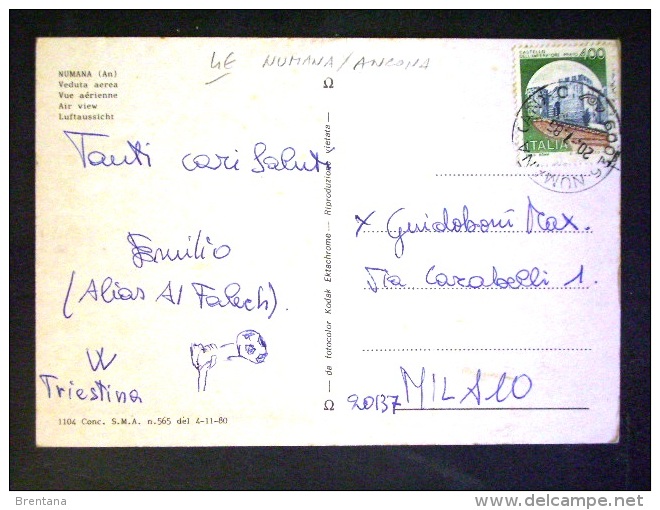 4E NUMANA/ANCONA
NUMANA (An)
Veduta aerea
Vue aérienne
Air view
Luftaussicht
Tanti cari Saluti
Emilio
(Alias Al Falech).
W
Triestina
1104 Conc. S.M.A. n.565 del 4-11-80
Ω — da fotocolor Kodak Ektachrome — Riproduzione vietata — Ω
CASTELLO
DELL'IMPERATORE PRATO
400
ITALIA
60026 NUMANA
X Guidoboni Max.
Via Carabelli 1.
20137 MILANO
Brentana
delcampe.net